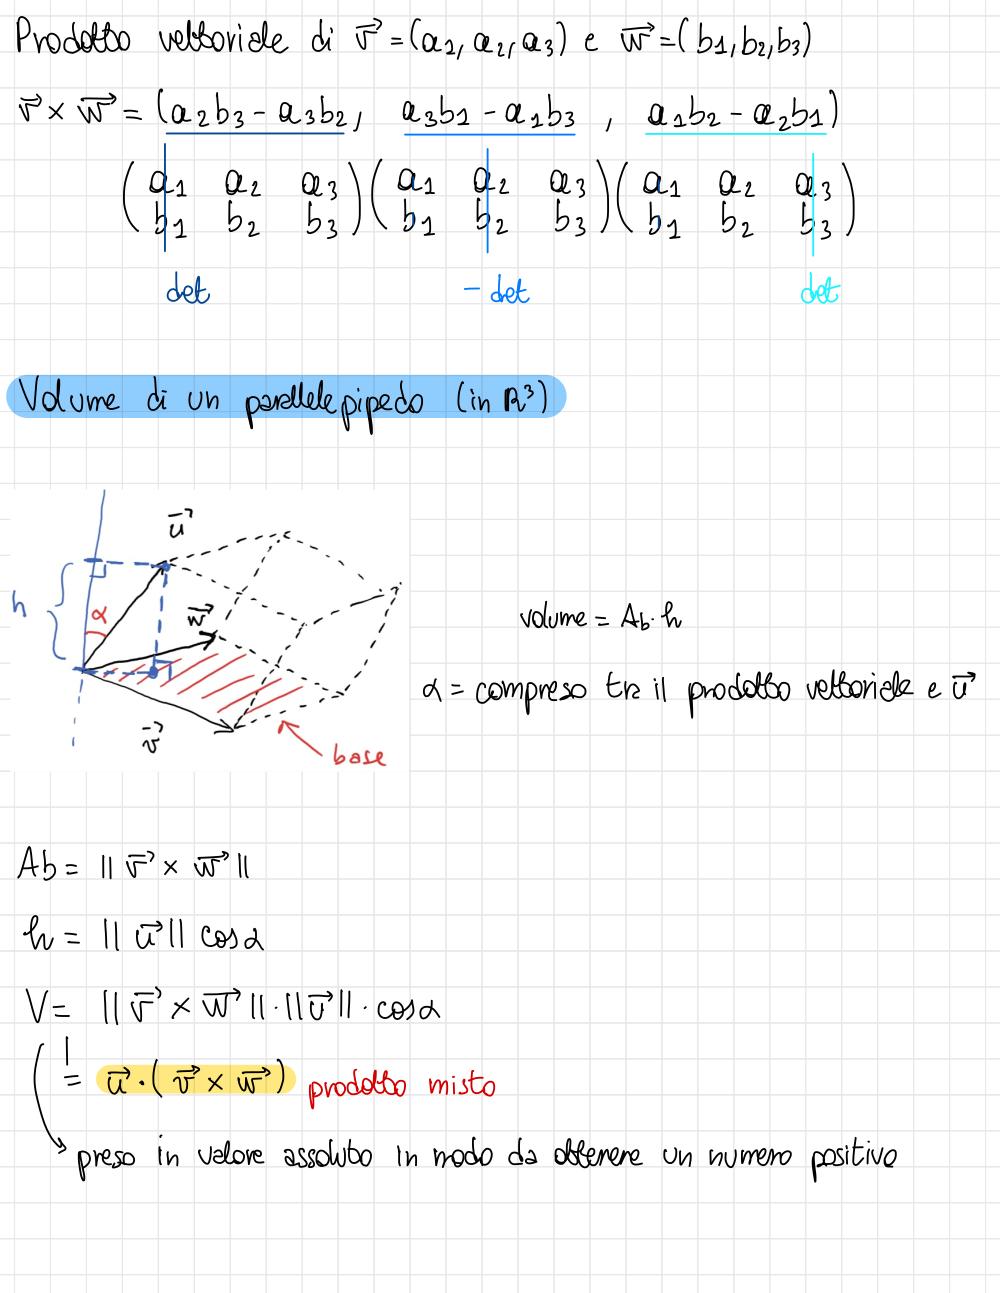 Prodotto vettoriale di v⃗ = (a1, a2, a3) e w⃗ = (b1, b2, b3)
v⃗ × w⃗ = (a2b3 - a3b2, a3b1 - a1b3 , a1b2 - a2b1)
(a1 a2 a3) (a1 a2 a3) (a1 a2 a3)
(b1 b2 b3) (b1 b2 b3) (b1 b2 b3)
det - det det
Volume di un parallelepipedo (in R³)
u⃗
h
α
w⃗
v⃗
base
volume = Ab · h
α = compreso tra il prodotto vettoriale e u⃗
Ab = || v⃗ × w⃗ ||
h = || u⃗ || cosα
V = || v⃗ × w⃗ || · || u⃗ || · cosα
!
= u⃗ · ( v⃗ × w⃗ ) prodotto misto
preso in valore assoluto in modo da ottenere un numero positivo